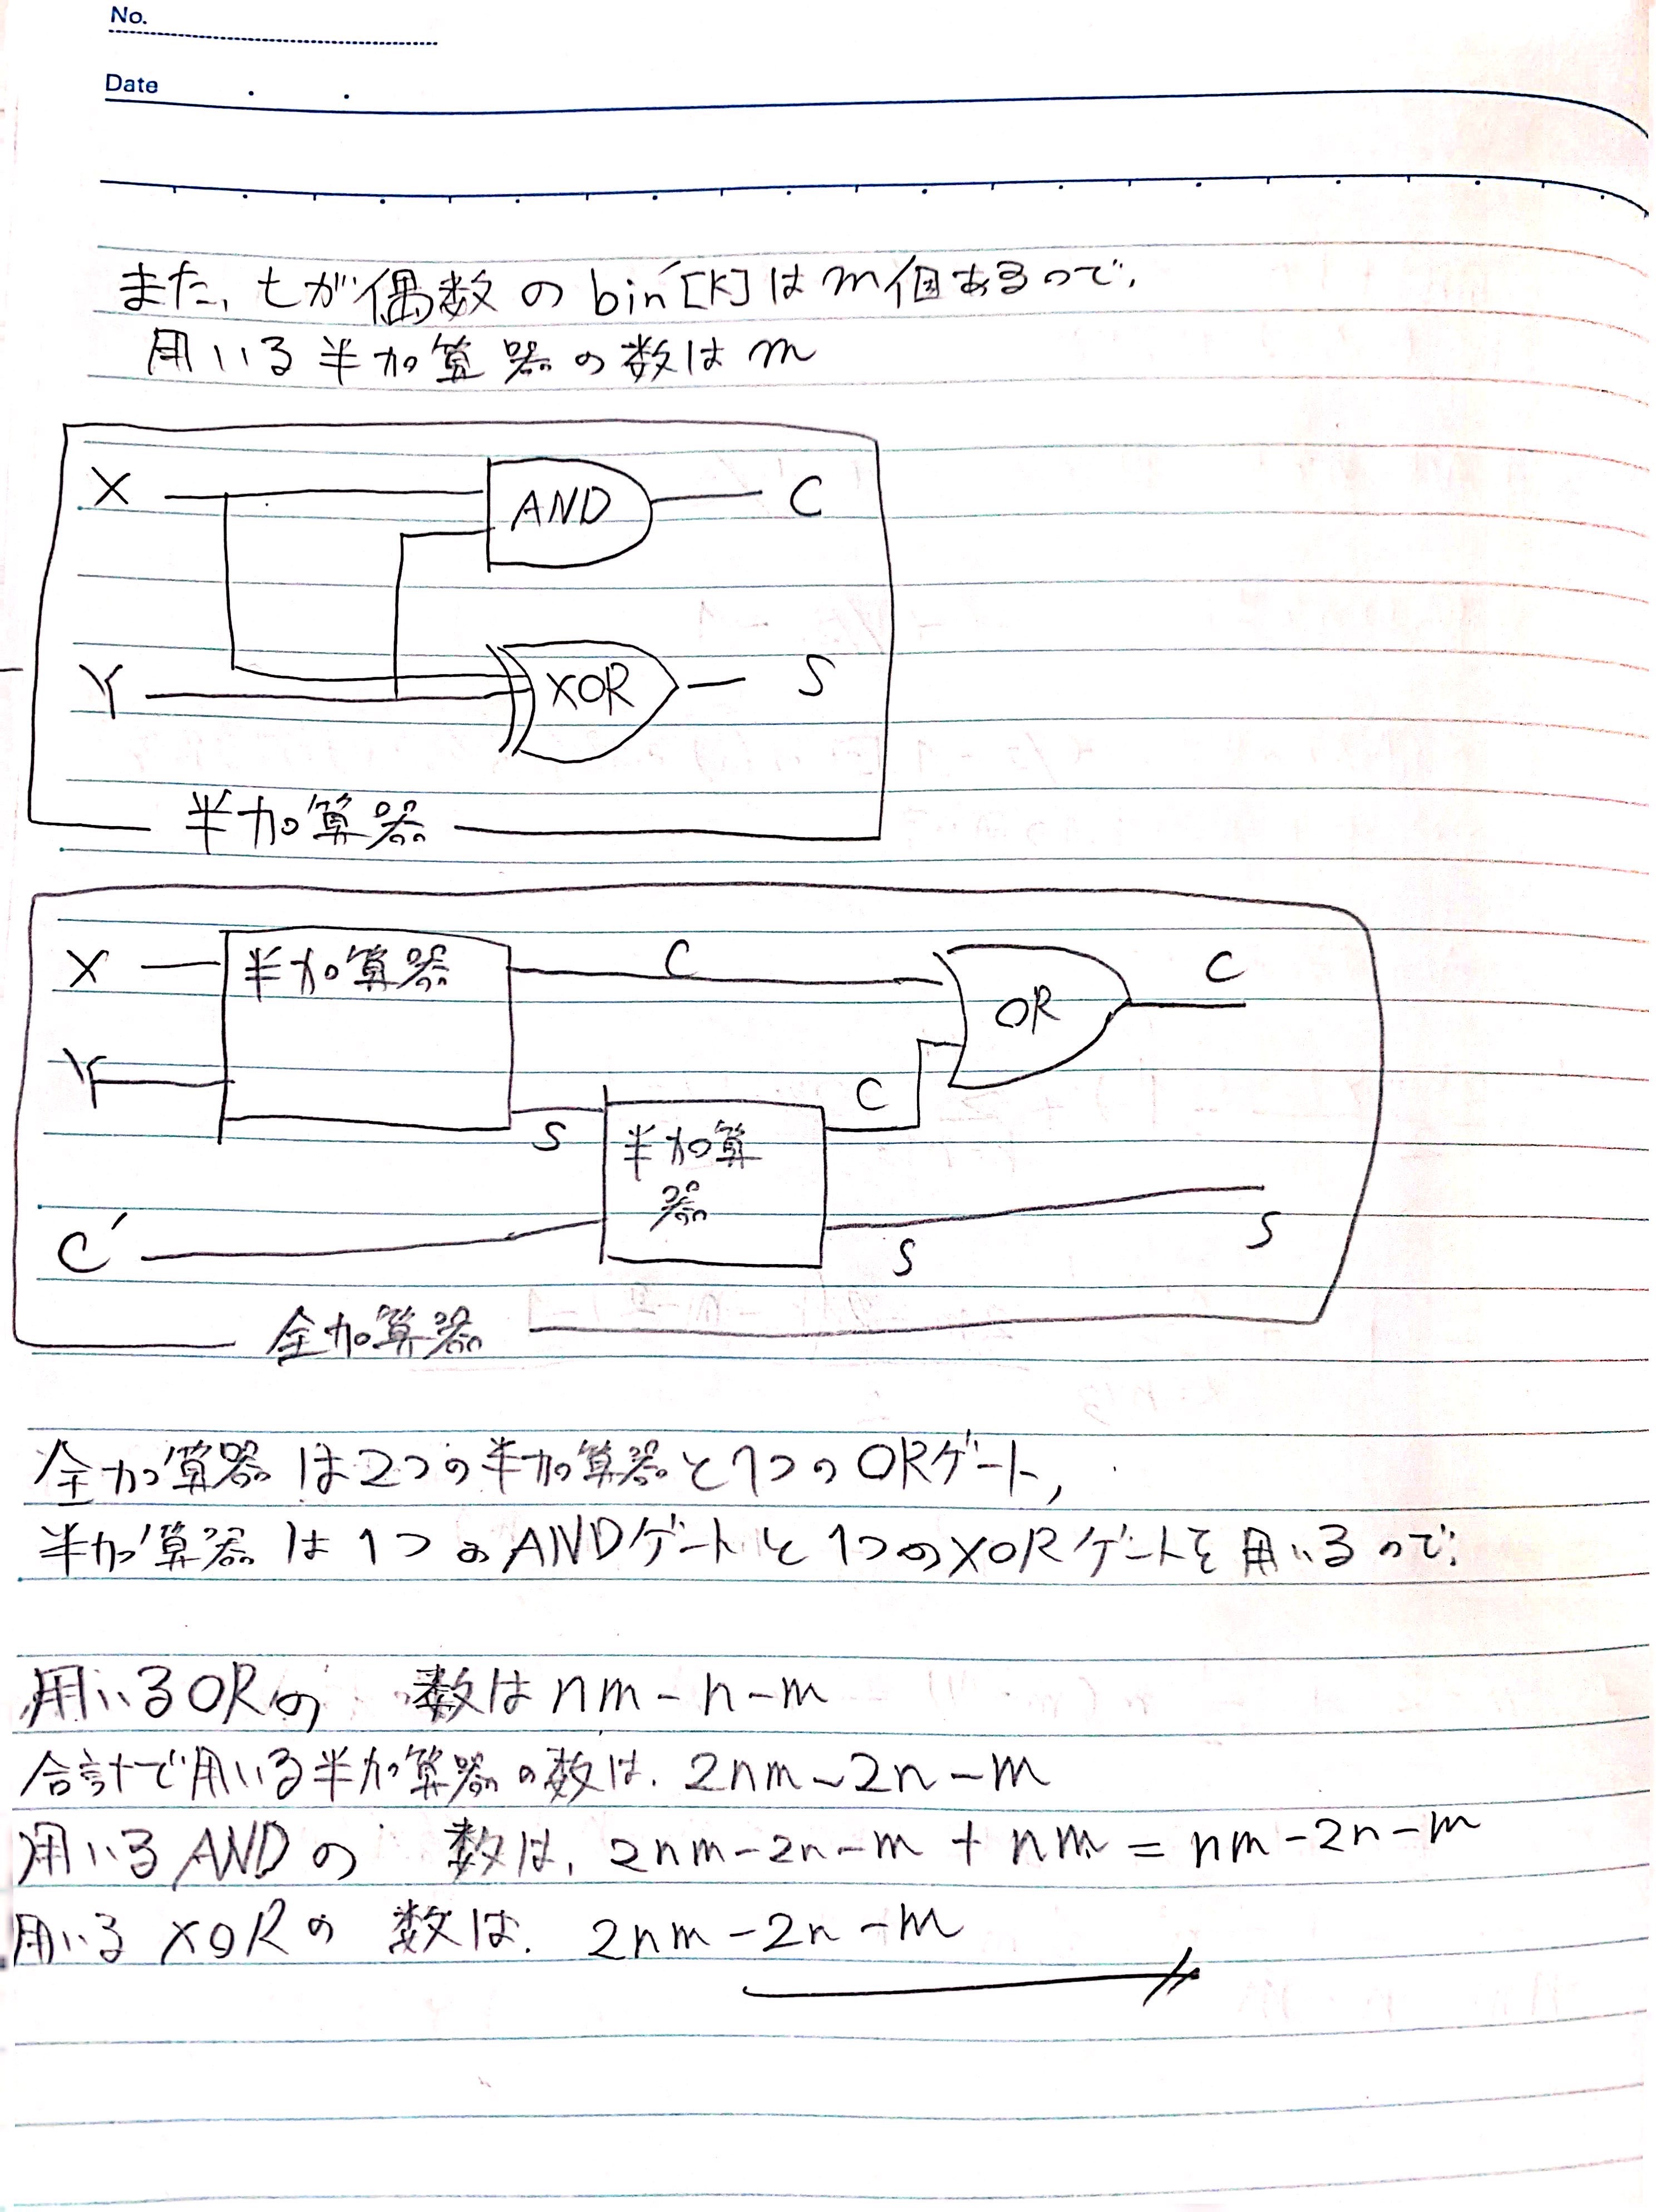 No.
Date
また、tが偶数のbin[k]はm個あるので、
用いる半加算器の数はm
X AND C
Y XOR S
半加算器
X 半加算器 C OR C
Y S 半加算器 C
C' S S
全加算器
全加算器は2つの半加算器と1つのORゲート,
半加算器は1つのANDゲートと1つのXORゲートを用いるので、
用いるORの 数はnm-n-m
合計で用いる半加算器の数は、2nm-2n-m
用いるANDの 数は、2nm-2n-m+nm=nm-2n-m
用いるXORの 数は、2nm-2n-m